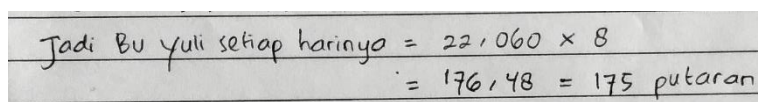 Jadi Bu Yuli setiap harinya = 22,060 × 8
= 176,48 = 175 putaran